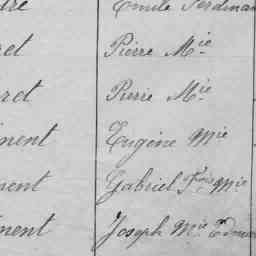 Emile Ferdinan
ret Pierre Mie
ret Pierre Mie
ment Eugène Mie
ment Gabriel Fois Mie
ment Joseph Mie Edmon